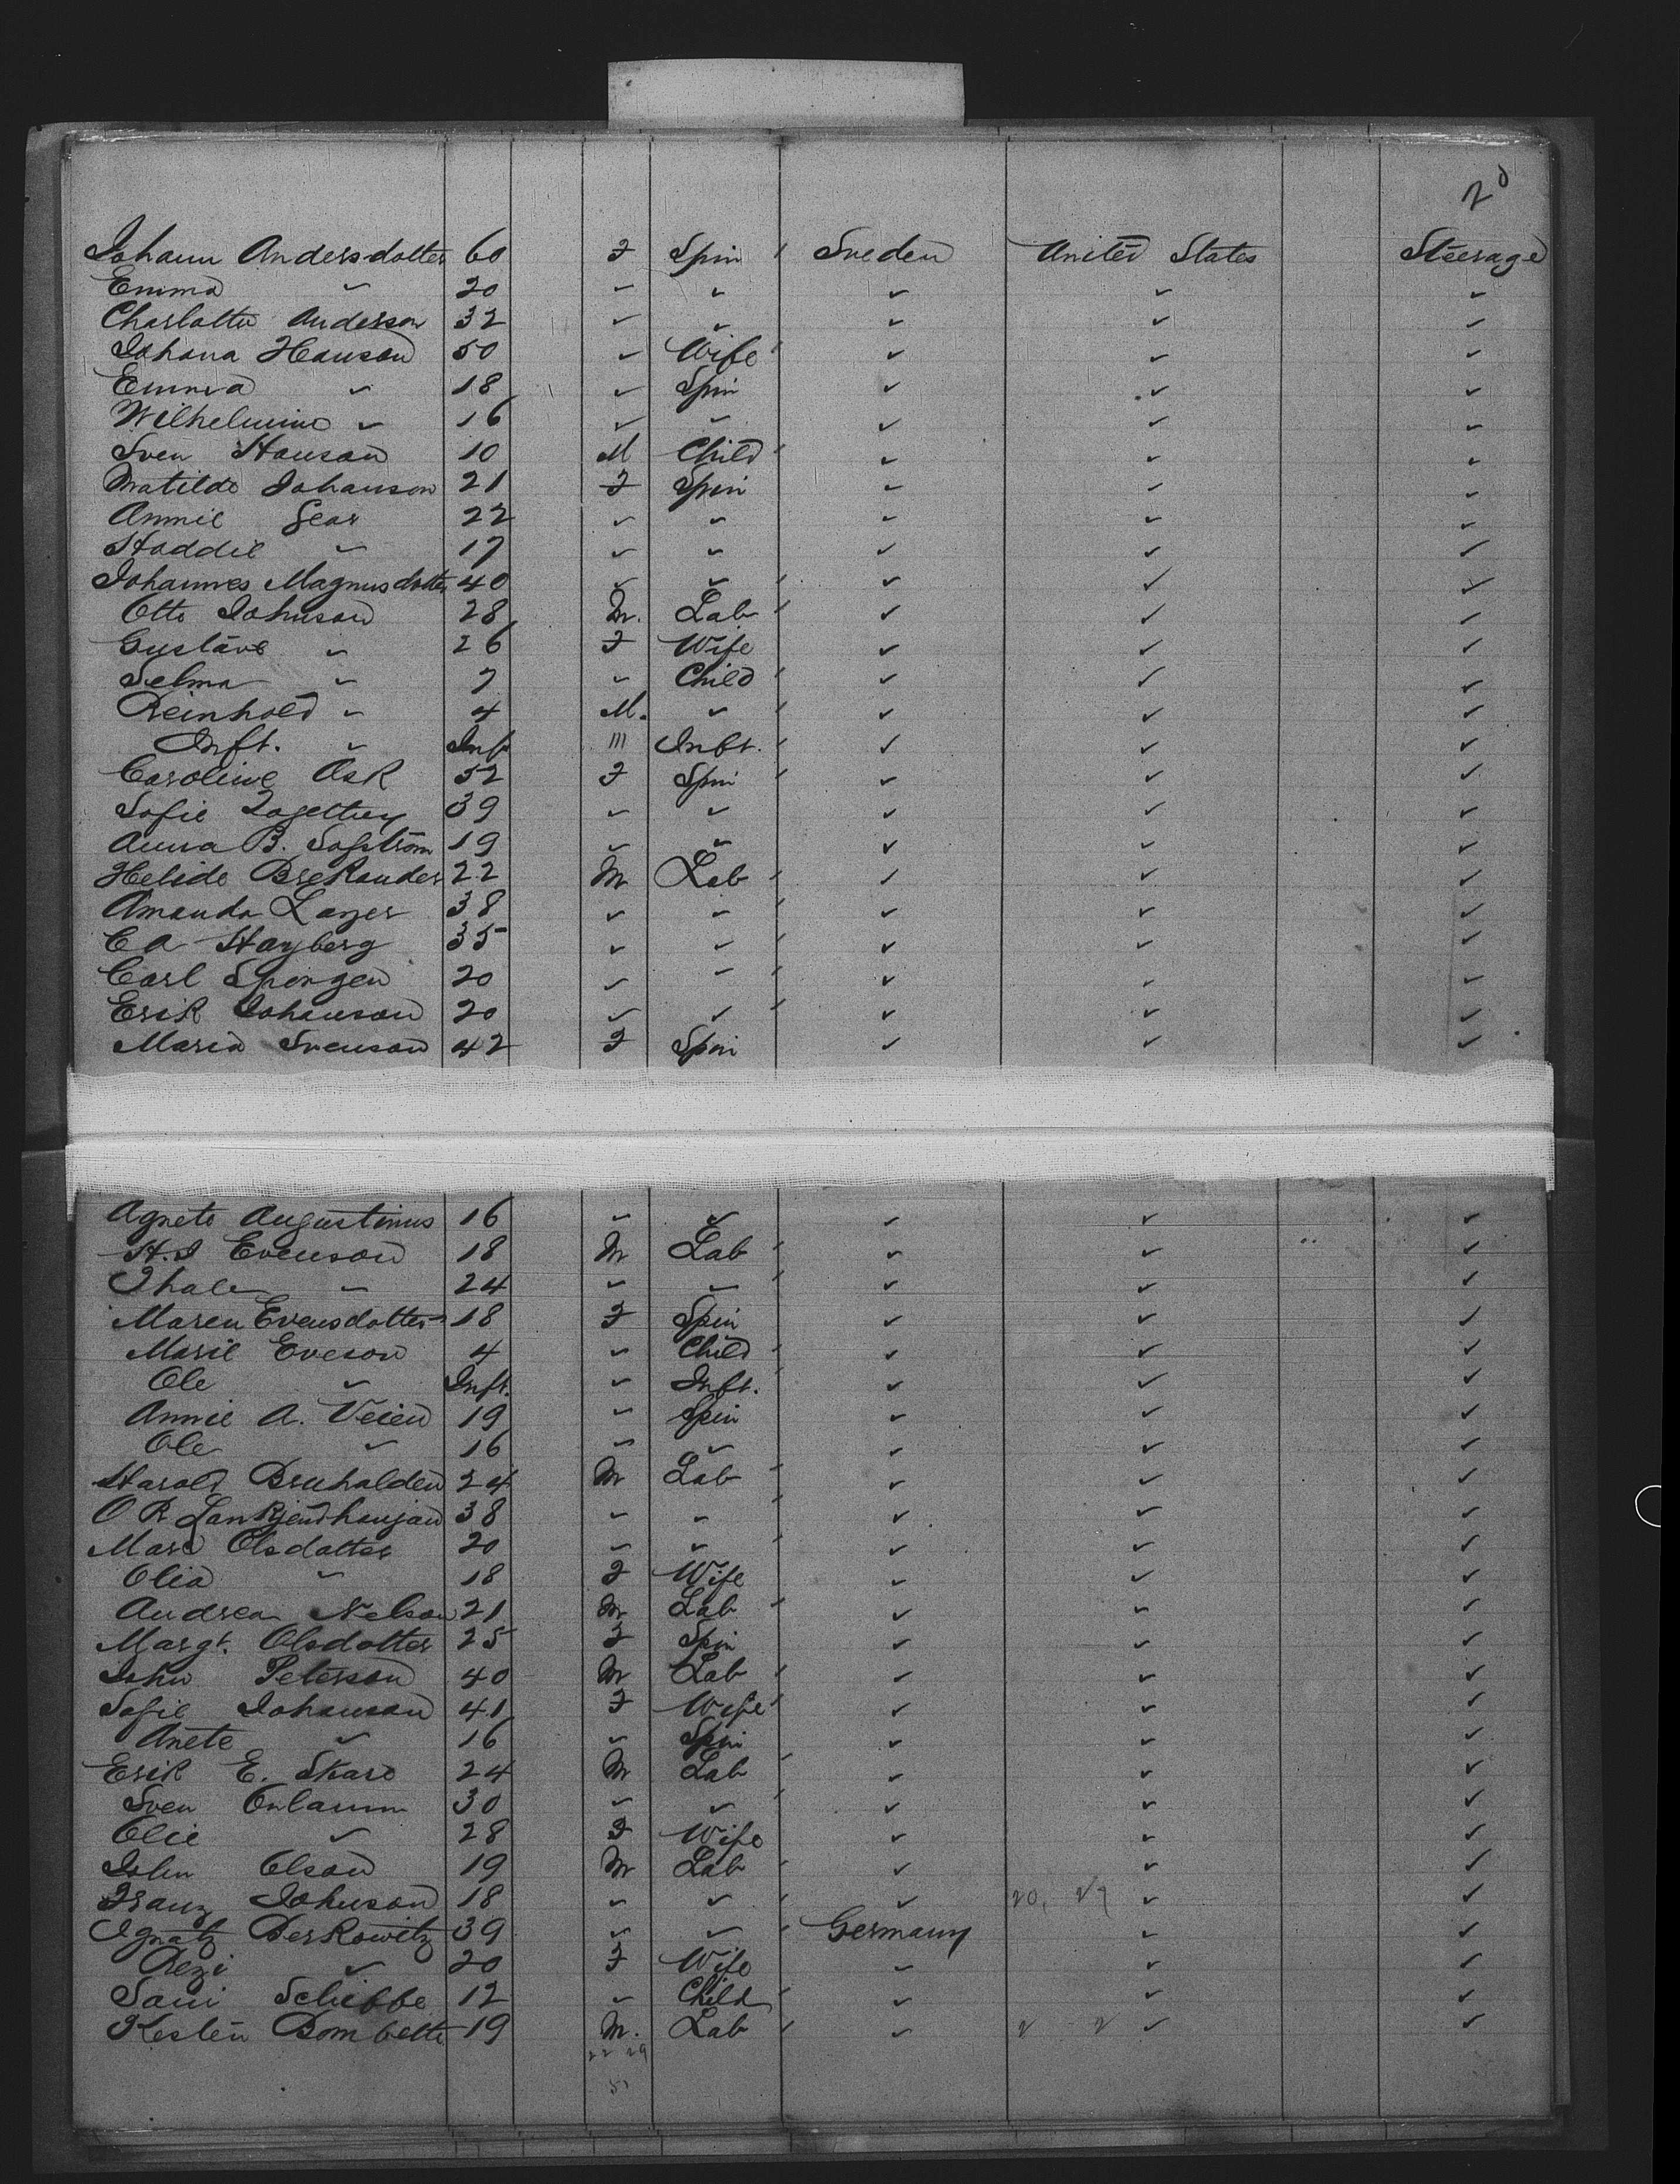 2d
Johann Andersdotter 60 F Spin Sweden United States Steerage
Emma " 20 " " " " "
Charlotte Anderson 32 " " " " "
Johana Hanson 50 " Wife " " "
Emma " 18 " Spin " " "
Wilhelmine " 16 " " " " "
Sven Hanson 10 M Child " " "
Matilde Johanson 21 F Spin " " "
Annie Gear 22 " " " " "
Haddie " 17 " " " " "
Johannes Magnusdotter 40 " " " " "
Otto Johnson 28 M. Lab " " "
Gustave " 26 F Wife " " "
Selma " 7 " Child " " "
Reinhold " 4 M. " " " "
Inft. " Inft M Inft. " " "
Caroline Ask 52 F Spin " " "
Sofie 39 " " " " "
Anna B. Sofström 19 " " " " "
Helide Brekander 22 M Lab " " "
Amanda Lazer 38 " " " " "
C A Hayberg 35 " " " " "
Carl Spongen 20 " " " " "
Erik Johanson 20 " " " " "
Maria Svenson 42 F Spin " " "
Agnete Augustinus 16 " " " " "
H. J Evenson 18 M Lab " " "
Thale " 24 " " " " "
Maren Evensdotter 18 F Spin " " "
Marie Eveson 4 " Child " " "
Ole " Inft. " Inft. " " "
Annie A. Veien 19 " Spin " " "
Ole " 16 " " " " "
Harold Bruhalden 24 M Lab " " "
O R 38 " " " " "
Mard Olsdotter 20 " " " " "
Olia " 18 F Wife " " "
Andrea Nelson 21 M Lab " " "
Margt. Olsdotter 25 F Spin " " "
John Peterson 40 M Lab " " "
Sofie Johanson 41 F Wife " " "
Anete " 16 " Spin " " "
Erik E. Skaro 24 M Lab " " "
Sven Enlaunn 30 " " " " "
Elie " 28 F Wife " " "
John Olson 19 M Lab " " "
Franz Johnson 18 " " " 20, 27 " "
Ignatz Berkowitz 39 " " Germany " "
Rezi " 20 F Wife " " "
Sani Schebbe 12 " Child " " "
Kesten Bombette 19 M. Lab " 2 - 2 " "
22 29
51